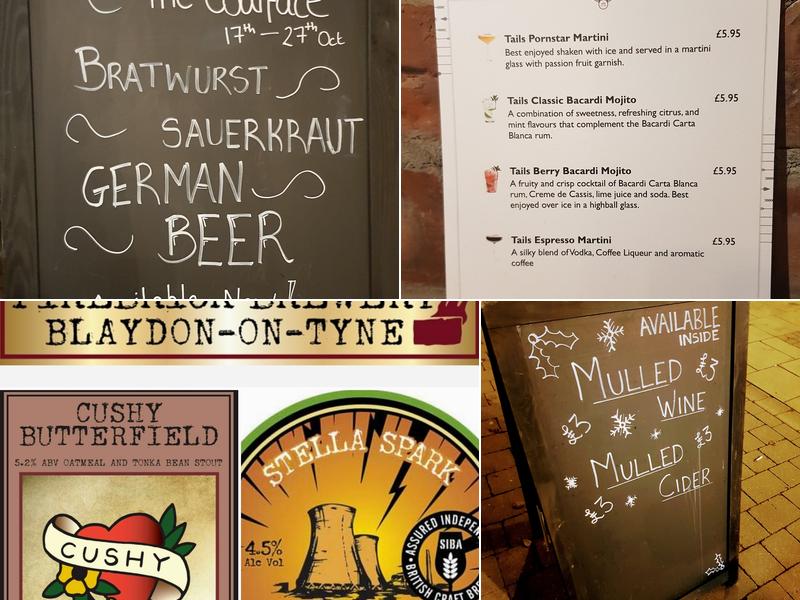 The Coalface
17th — 27th Oct
BRATWURST
SAUERKRAUT
GERMAN
BEER
Available Now!
Tails Pornstar Martini £5.95
Best enjoyed shaken with ice and served in a martini
glass with passion fruit garnish.
Tails Classic Bacardi Mojito £5.95
A combination of sweetness, refreshing citrus, and
mint flavours that complement the Bacardi Carta
Blanca rum.
Tails Berry Bacardi Mojito £5.95
A fruity and crisp cocktail of Bacardi Carta Blanca
rum, Creme de Cassis, lime juice and soda. Best
enjoyed over ice in a highball glass.
Tails Espresso Martini £5.95
A silky blend of Vodka, Coffee Liqueur and aromatic
coffee
FIREBRICK BREWERY
BLAYDON-ON-TYNE
CUSHY
BUTTERFIELD
5.2% ABV OATMEAL AND TONKA BEAN STOUT
CUSHY
STELLA SPARK
4.5%
Alc Vol
ASSURED INDEPEN
SIBA
BRITISH CRAFT BRE
AVAILABLE
INSIDE
MULLED £3
WINE
£3
£3
MULLED
CIDER
£3